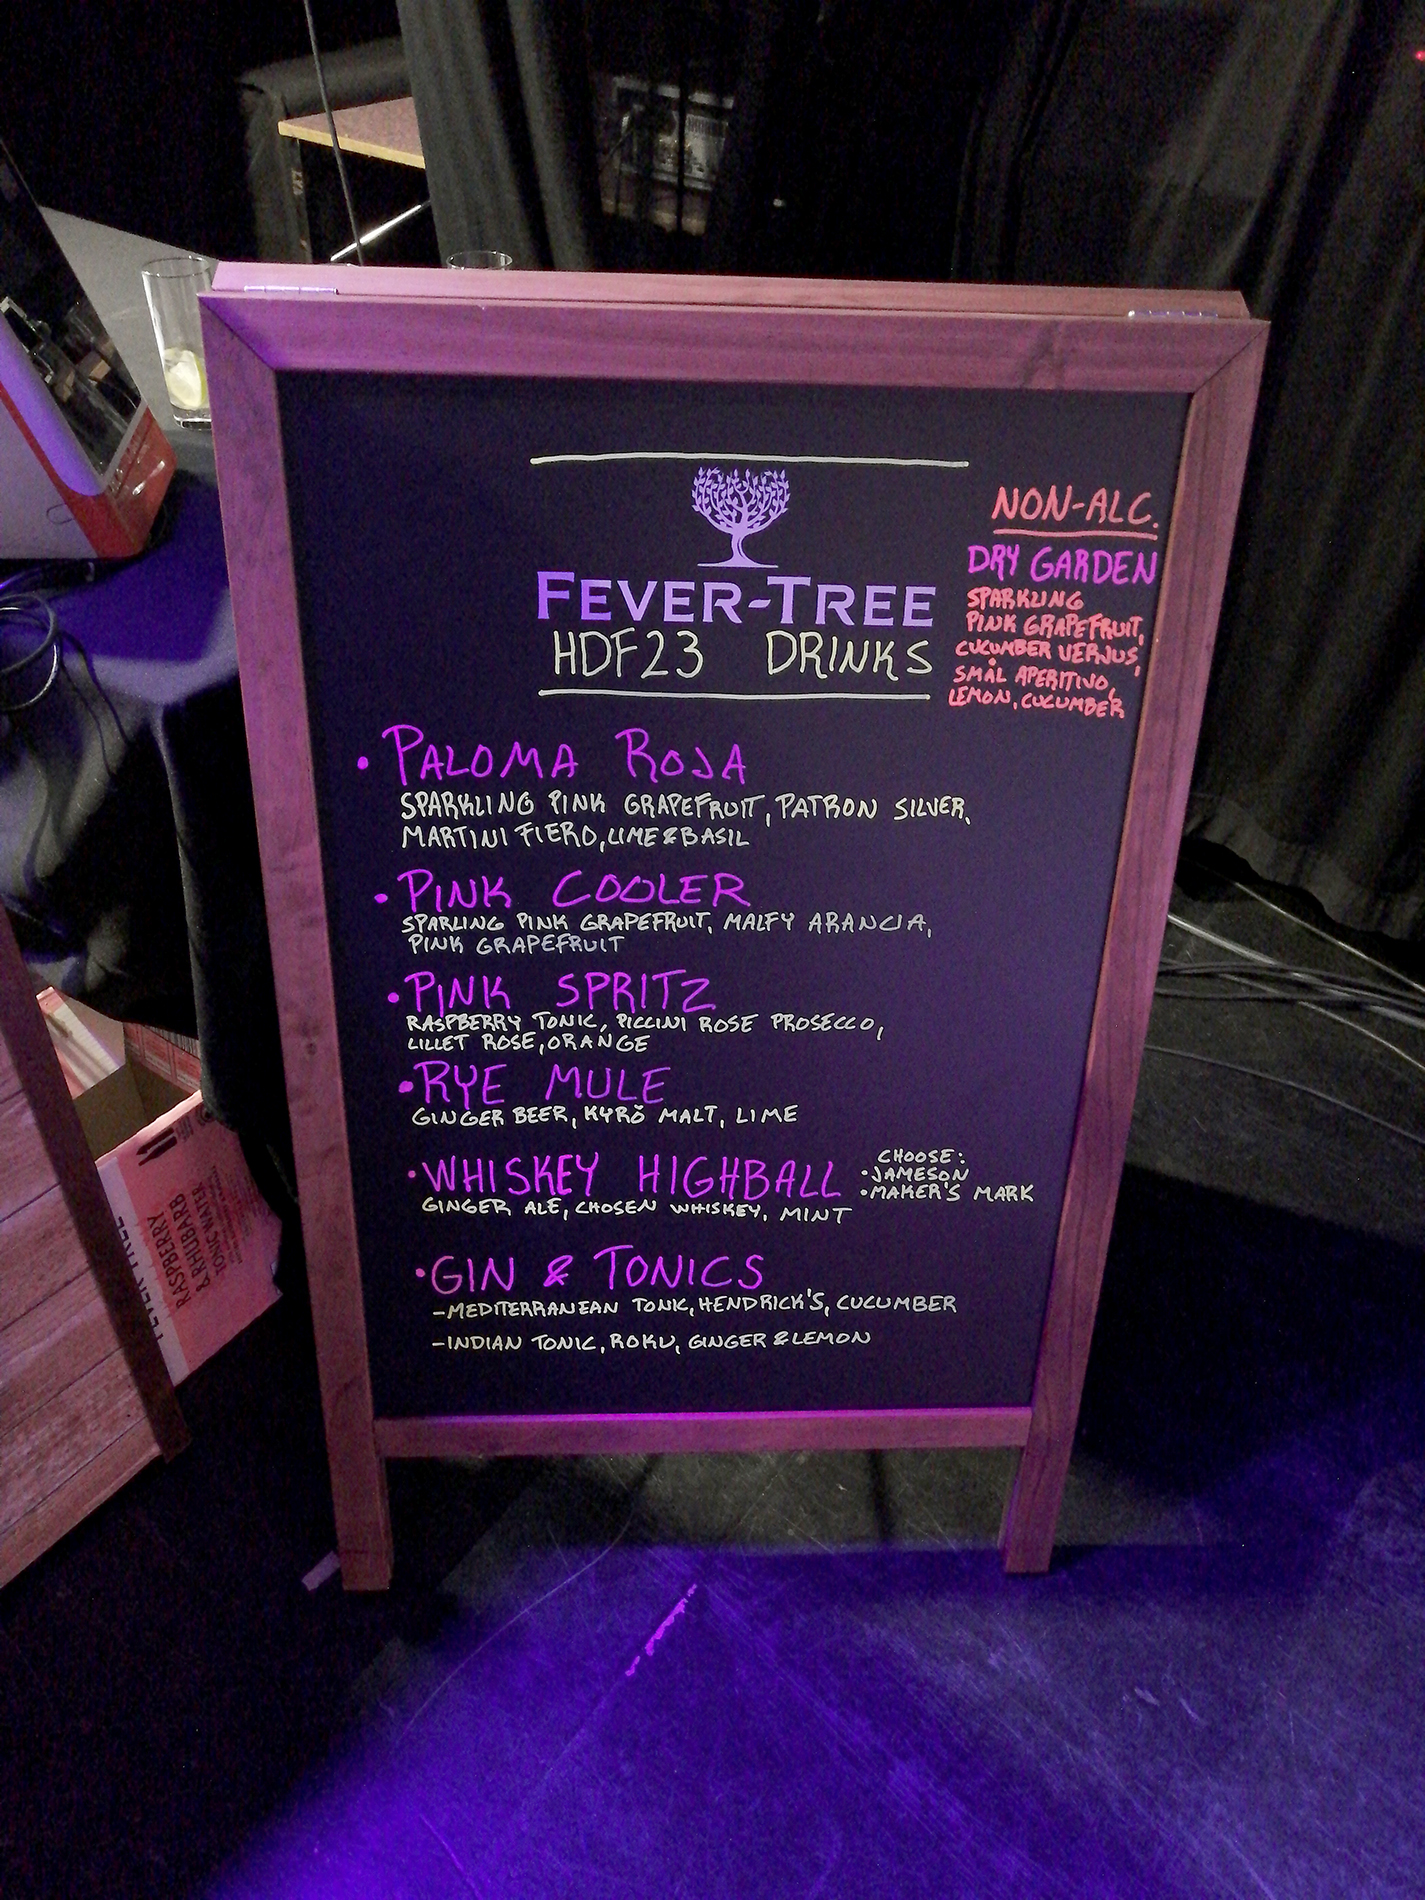 FEVER-TREE
HDF23 DRINKS
NON-ALC.
DRY GARDEN
SPARKLING
PINK GRAPEFRUIT,
CUCUMBER VERJUS,
SMÅL APERITIVO,
LEMON, CUCUMBER
• PALOMA ROJA
SPARKLING PINK GRAPEFRUIT, PATRON SILVER,
MARTINI FIERO, LIME & BASIL
• PINK COOLER
SPARLING PINK GRAPEFRUIT, MALFY ARANCIA,
PINK GRAPEFRUIT
• PINK SPRITZ
RASPBERRY TONIC, PICCINI ROSE PROSECCO,
LILLET ROSE, ORANGE
• RYE MULE
GINGER BEER, KYRÖ MALT, LIME
• WHISKEY HIGHBALL
GINGER ALE, CHOSEN WHISKEY, MINT
CHOOSE:
• JAMESON
• MAKER'S MARK
• GIN & TONICS
- MEDITERRANEAN TONIC, HENDRICK'S, CUCUMBER
- INDIAN TONIC, ROKU, GINGER & LEMON
RASPBERRY
& RHUBARB
TONIC WATER